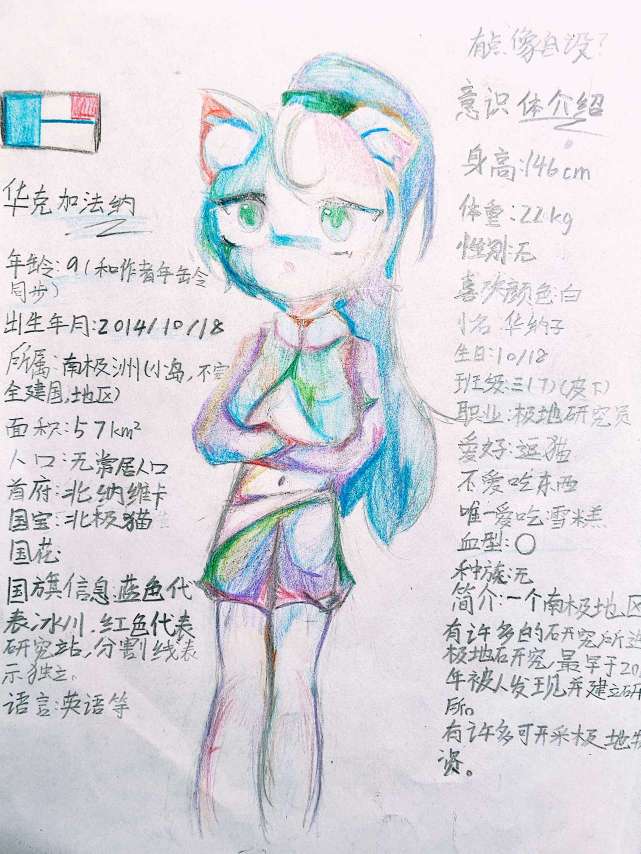 华克加法纳
年龄:9(和作者年龄
同步)
出生年月:2014/10/18
所属:南极洲(小岛,不完
全建国,地区)
面积:57km²
人口:无常居人口
首府:北纳维卡
国宝:北极猫
国花:
国旗信息:蓝色代
表冰川,红色代表
研究站,分割线表
示独立。
语言:英语等
有点像自设?
意识体介绍
身高:146cm
体重:22kg
性别:无
喜欢颜色:白
小名:华纳子
生日:10/18
班级:三(7)(皮下)
职业:极地研究员
爱好:逗猫
不爱吃东西
唯一爱吃:雪糕
血型:O
种族:无
简介:一个南极地区
有许多的研究所
极地研究,最早于20
年被人发现并建立研
所。
有许多可开采极地物
资。